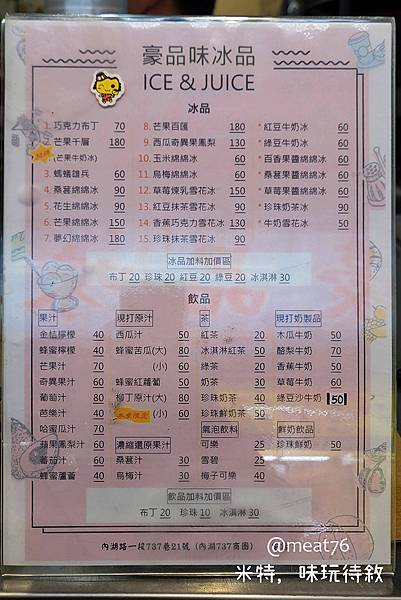 豪品味冰品
ICE & JUICE
冰品
1. 巧克力布丁 70
2. 芒果千層 180
(芒果牛奶冰)
3. 螞蟻雄兵 60
4. 桑葚綿綿冰 90
5. 花生綿綿冰 90
6. 芒果綿綿冰 150
7. 夢幻綿綿冰 180
8. 芒果百匯 180
9. 西瓜奇異果鳳梨 130
10. 玉米綿綿冰 60
11. 烏梅綿綿冰 60
12. 草莓煉乳雪花冰 150
13. 紅豆抹茶雪花冰 90
14. 香蕉巧克力雪花冰 130
15. 珍珠抹茶雪花冰 90
* 紅豆牛奶冰 60
* 綠豆牛奶冰 60
* 百香果醬綿綿冰 60
* 桑葚果醬綿綿冰 60
* 草莓果醬綿綿冰 60
* 珍珠奶茶冰 60
* 牛奶雪花冰 50
冰品加料加價區
布丁 20 珍珠 20 紅豆 20 綠豆 20 冰淇淋 30
飲品
果汁
金桔檸檬 40
蜂蜜檸檬 40
芒果汁 70
奇異果汁 60
葡萄汁 80
芭樂汁 40
哈蜜瓜汁 70
蘋果鳳梨汁 60
蕃茄汁 60
蜂蜜蘆薈 40
現打原汁
西瓜汁 50
蜂蜜苦瓜(大) 80
(小) 60
蜂蜜紅蘿蔔 50
柳丁原汁(大) 80
(小) 60
濃縮還原果汁
桑葚汁 30
烏梅汁 30
茶
紅茶 20
冰淇淋紅茶 50
綠茶 20
奶茶 30
珍珠奶茶 40
珍珠鮮奶茶 50
氣泡飲料
可樂 25
雪碧 25
梅子可樂 40
現打奶製品
木瓜牛奶 50
酪梨牛奶 70
香蕉牛奶 50
草莓牛奶 60
綠豆沙牛奶 50
鮮奶飲品
珍珠鮮奶 50
飲品加料加價區
布丁 20 珍珠 10 冰淇淋 30
內湖路一段737巷21號 (內湖737商圈)
@meat76
米特, 味玩待敘